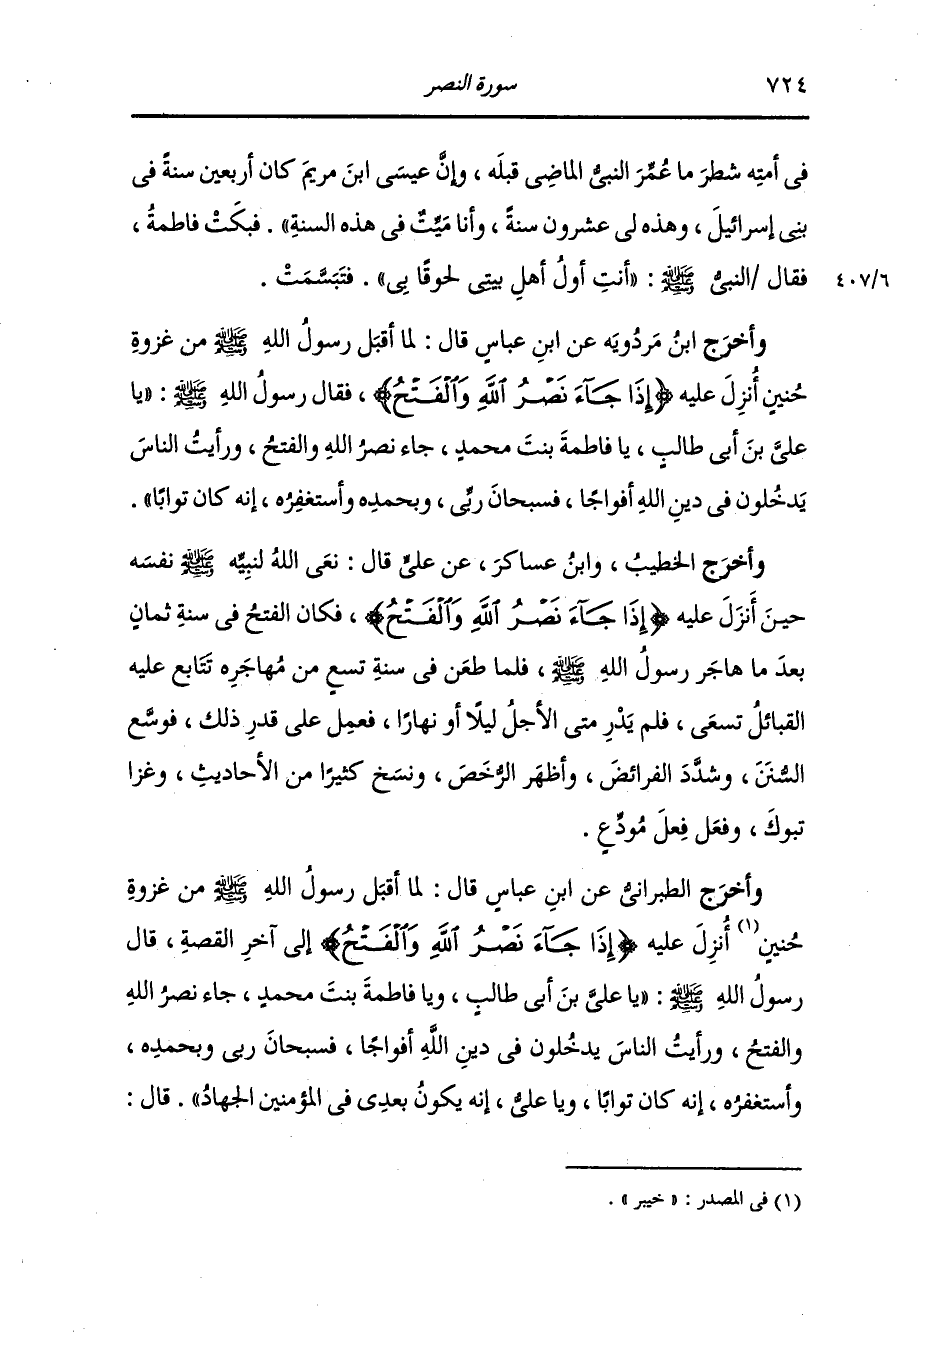 ٧٢٤ سورة النصر
فى أمتِه شطرَ ما عُمِّرَ النبىُّ الماضِى قبلَه ، وإنَّ عيسَى ابنَ مريمَ كان أربعين سنةً فى
بنِى إسرائيلَ ، وهذه لى عشرون سنةً ، وأنا مَيِّتٌ فى هذه السنةِ» . فبكَتْ فاطمةُ ،
٤٠٧/٦ فقال /النبىُّ ﷺ : «أنتِ أولُ أهلِ بيتِى لحوقًا بِى» . فتَبَسَّمَتْ .
وأخرَج ابنُ مَردُويَه عن ابنِ عباسٍ قال : لما أقبَل رسولُ اللهِ ﷺ من غزوةِ
حُنينٍ أُنزِلَ عليه ﴿إِذَا جَآءَ نَصْرُ ٱللَّهِ وَٱلْفَتْحُ﴾ ، فقال رسولُ اللهِ ﷺ : «يا
علىَّ بنَ أبى طالبٍ ، يا فاطمةَ بنتَ محمدٍ ، جاء نصرُ اللهِ والفتحُ ، ورأيتُ الناسَ
يَدخُلون فى دينِ اللهِ أفواجًا ، فسبحانَ ربِّى ، وبحمدِه وأستغفِرُه ، إنه كان توابًا» .
وأخرَج الخطيبُ ، وابنُ عساكرَ ، عن علىٍّ قال : نعَى اللهُ لنبيِّه ﷺ نفسَه
حينَ أَنزَلَ عليه ﴿إِذَا جَآءَ نَصْرُ ٱللَّهِ وَٱلْفَتْحُ﴾ ، فكان الفتحُ فى سنةِ ثمانٍ
بعدَ ما هاجَر رسولُ اللهِ ﷺ ، فلما طعَن فى سنةِ تسعٍ من مُهاجَرِه تَتَابع عليه
القبائلُ تسعَى ، فلم يَدْرِ متى الأجلُ ليلًا أو نهارًا ، فعمِل على قدرِ ذلك ، فوسَّع
السُّنَنَ ، وشدَّدَ الفرائضَ ، وأظهَر الرُّخَصَ ، ونسَخ كثيرًا من الأحاديثِ ، وغزا
تبوكَ ، وفعَل فِعلَ مُودِّعٍ .
وأخرَج الطبرانىُّ عن ابنِ عباسٍ قال : لما أقبَل رسولُ اللهِ ﷺ من غزوةِ
حُنينٍ(١) أُنزِلَ عليه ﴿إِذَا جَآءَ نَصْرُ ٱللَّهِ وَٱلْفَتْحُ﴾ إلى آخرِ القصةِ ، قال
رسولُ اللهِ ﷺ : «يا علىَّ بنَ أبى طالبٍ ، ويا فاطمةَ بنتَ محمدٍ ، جاء نصرُ اللهِ
والفتحُ ، ورأيتُ الناسَ يدخُلون فى دينِ اللَّهِ أفواجًا ، فسبحانَ ربى وبحمدِه ،
وأستغفرُه ، إنه كان توابًا ، ويا علىُّ ، إنه يكونُ بعدِى فى المؤمنين الجهادُ» . قال :
(١) فى المصدر : « خيبر » .